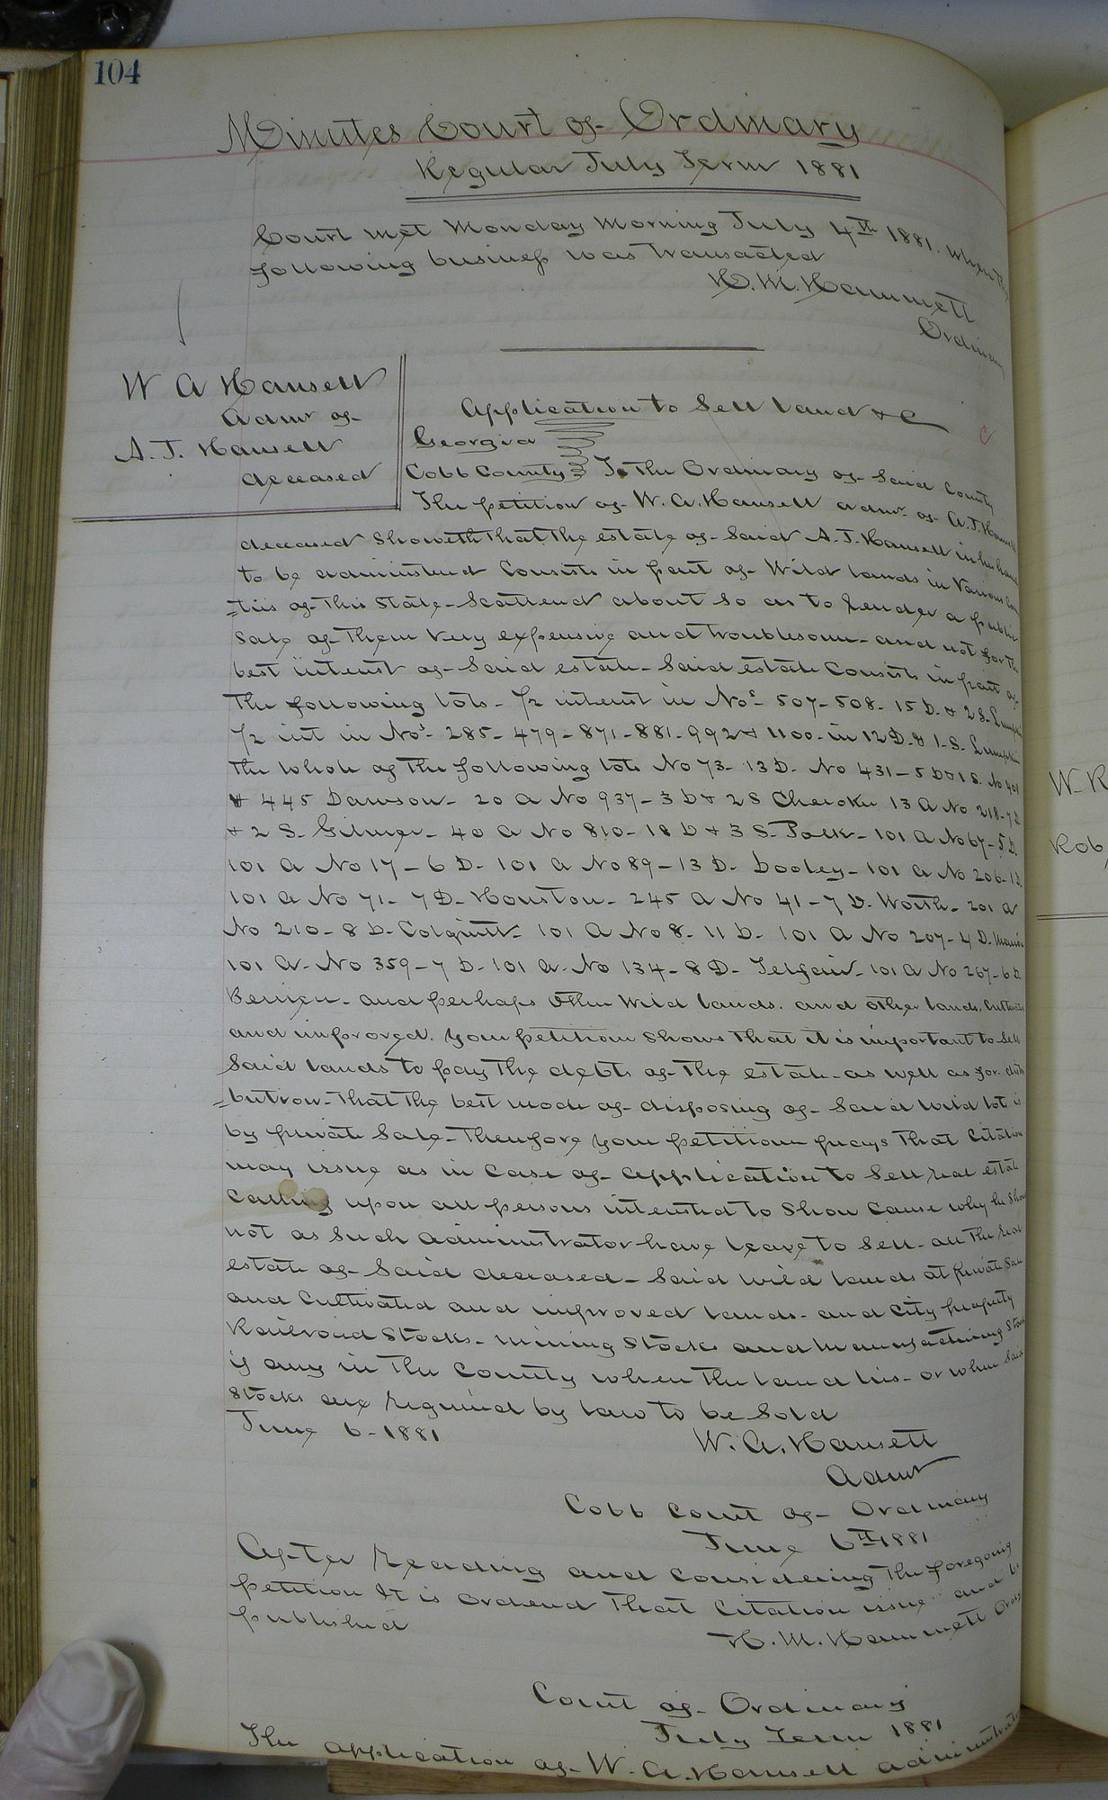 104
Minutes Court of Ordinary
Regular July Term 1881
Court met Monday Morning July 4th 1881. when the
following business was transacted
H. M. Hammett
Ordinary
W A Hansell
Admr of
A. J. Hansell
deceased
Application to Sell Land & C
Georgia
Cobb County To the Ordinary of Said County
The petition of W. A. Hansell admr of A. J. Hansell
deceased Showeth that the estate of Said A. J. Hansell in his hands
to be administered Consists in part of Wild lands in Various Coun
=ties of this State - Scattered about so as to render a public
Sale of them very expensive and troublesome - and not for the
best interest of Said estate - Said estate Consists in part of
the following lots - 1/2 interest in Nos 507 - 508 - 15 D. & 2 S. Lumpkin
1/2 int in Nos 285 - 479 - 871 - 881 - 992 & 1100 - in 12 D. & 1 - S. Lumpkin
the whole of the following lots No 73 - 13 D - No 431 - 5 D & 1 S. No 401
& 445 Dawson - 20 a No 937 - 3 D & 2 S Cherokee 13 a No 218 - 7 D
& 2 S. Gilmer - 40 a No 810 - 18 D & 3 S - Polk - 101 a No 67 - 5 D.
101 a No 17 - 6 D - 101 a No 89 - 13 D - Dooley - 101 a No 206 - 1 D
101 a No 71 - 7 D - Houston - 245 a No 41 - 7 D. Worth - 201 a
No 210 - 8 D - Colquitt - 101 a No 8 - 11 D - 101 a No 207 - 4 D.
101 a - No 359 - 7 D - 101 a - No 134 - 8 D - Telfair - 101 a No 267 - 6 D.
Berrien - and perhaps other Wild lands. and other lands, Cultivated
and improved. Your petitioner Shows that it is important to Sell
Said lands to pay the debts of the estate - as well as for distri
=bution - that the best mode of disposing of Said Wild lots is
by private Sale - Therefore your petitioner prays that Citation
may issue as in Case of application to Sell real estate
Calling upon all persons interested to Show Cause why he Should
not as Such administrator have leave to Sell - all the real
estate of Said deceased - Said wild lands at private Sale
and Cultivated and improved lands - and City property
Railroad Stocks - Mining Stocks and Manufacturing Stocks
if any in the County where the land lies - or where Said
Stocks are required by law to be Sold
June 6 - 1881
W. A. Hansell
Admr
Cobb Court of Ordinary
June 6th 1881
After reading and Considering the foregoing
petition It is Ordered that Citation issue and be
published
H. M. Hammett Ordy
Court of Ordinary
July Term 1881
The application of W. A. Hansell administrator
W. R
Rob